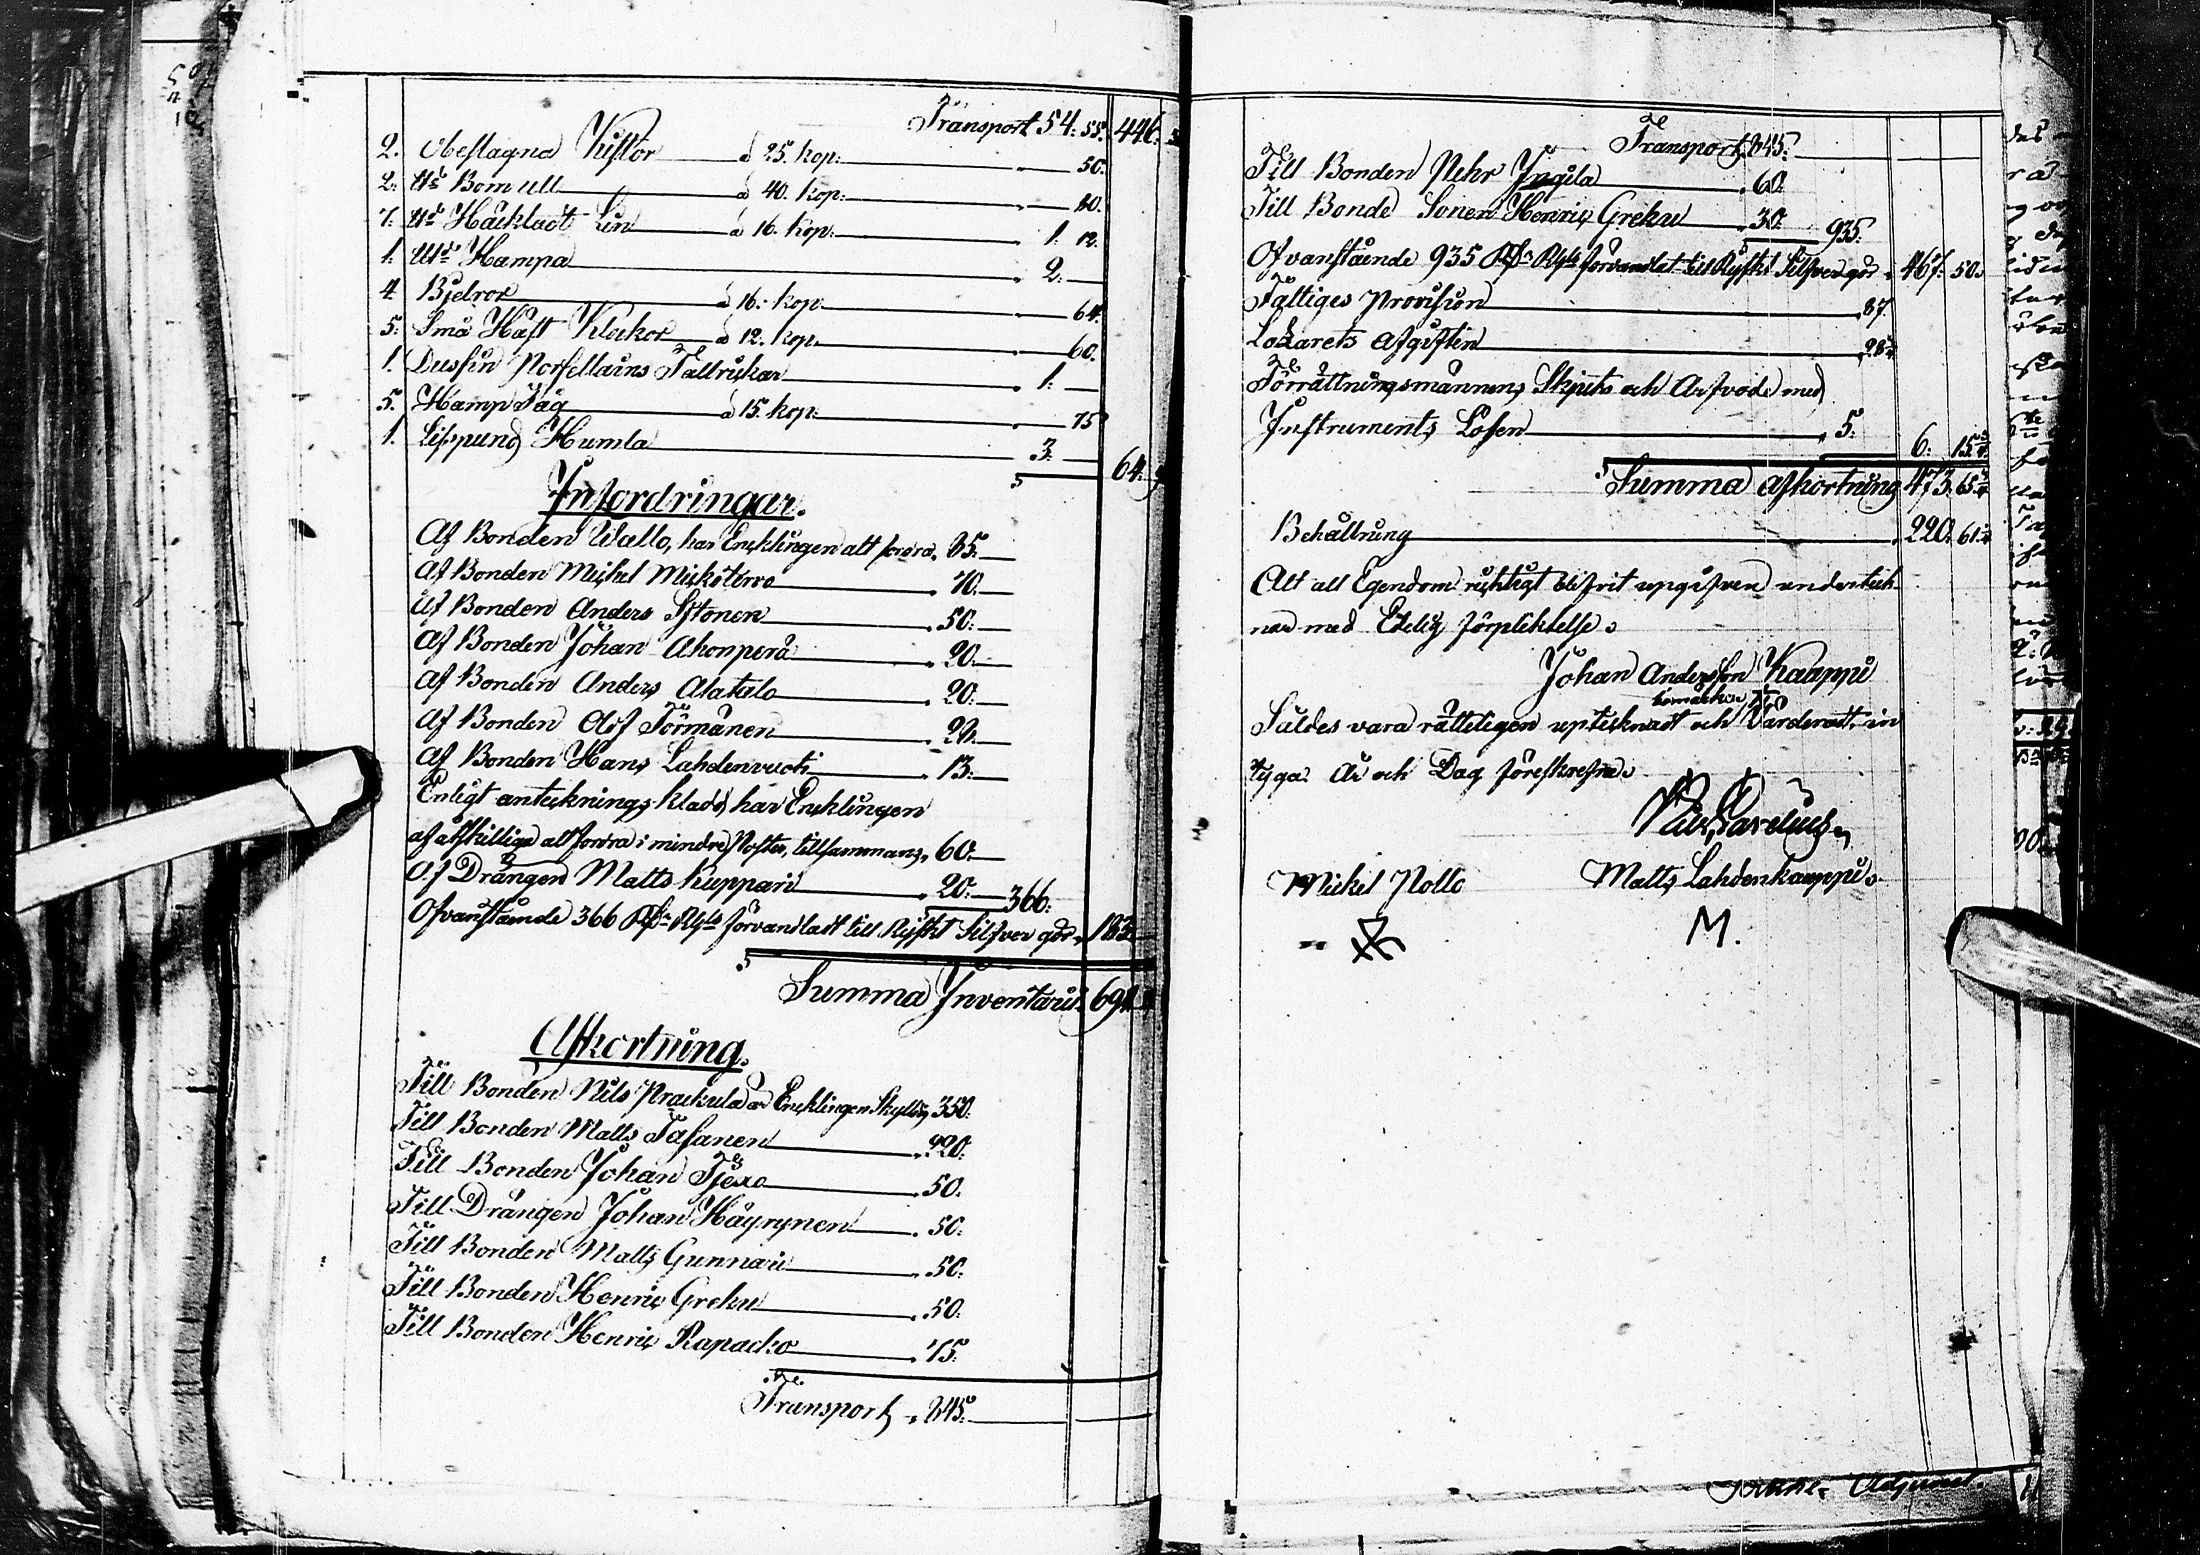 Transport 54: 55. 446:
2. Obeslagna Kistor à 25. kop: 50.
2. Ud Bomull à 40. kop: 80.
7. Ud Häckladt Lin à 16. kop: 1: 12.
1. Hampa 2:
4 Bjelror à 16: kop 64.
5: Små Häst Klockor à 12. kop. 60.
1. Dussin Porsellains Tallrickar 1:
5. Hamp Tåg à 15. kop: 75
1. Lispund Humla 3: 64:
Infordringar.
Af Bonden Wallo, har Encklingen att fordra. 85:
Af Bonden Michel 70:
Af Bonden Anders Sjtonen 50:
Af Bonden Johan Ahonperä 20:
Af Bonden Anders Alatalo 20:
Af Bonden Olof Törmänen 28:
Af Bonden Hans Lahdenvuoti 13:
Enligt antecknings kladd, har Encklingen
af åtskillige att fordra i mindre Poster, tillsammans, 60:
Af Drängen Matts Kuppari 20: 366:
Ofvanstående 366 förvandladt till Ryskt Silfver gör 183:
Summa Inventarii 694
Afkortning.
Till Bonden Nils Prackula är Encklingen Skyldig 350:
Till Bonden Matts Tasanen 220:
Till Bonden Johan Tjexa 50:
Till Drängen Johan Häyrynen 50:
Till Bonden Matts Gunnari 50:
Till Bonden Henric Greku 50:
Till Bonden Henric Rapacko 75:
Transport 845:
Transport 845:
Till Bonden Pehr Yngila 60:
Till Bonde Sonen Henric Greku 30: 935:
Ofvanstående 935 förvandlat till Ryskt Silfver gör 467: 50.
Fattiges Provision 87.
Lazarets Afgiften 28
Förrättningsmännens Skjuts och Arfvode med
Instruments Lösen 5: 6: 15
Summa afkortning 473. 65
Behållning 220: 61
Att all Egendom richtigt blifvit upgifven underteck-
nas med Edelig förplicktelse
Johan Andersson Kaappi
bomärke
Således vara rätteligen uptecknadt och Värderadt, in
tyga År och Dag föreskrefne
Michel Nollo Matts Lahdenkauppi
M.